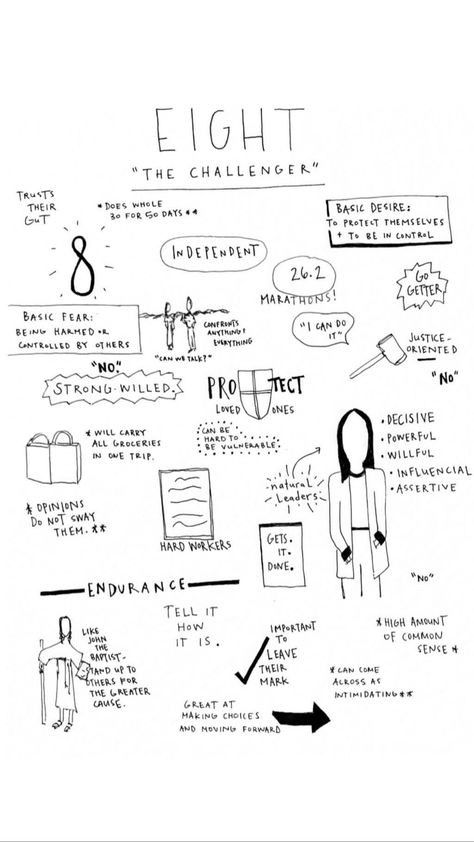 EIGHT
"THE CHALLENGER"
TRUSTS
THEIR
GUT
*DOES WHOLE
30 FOR 50 DAYS **
BASIC DESIRE:
TO PROTECT THEMSELVES
+ TO BE IN CONTROL
8
INDEPENDENT
26.2
MARATHONS!
GO
GETTER
BASIC FEAR:
BEING HARMED OR
CONTROLLED BY OTHERS
CONFRONTS
ANYTHING &
EVERYTHING
"CAN WE TALK?"
"I CAN DO
IT"
JUSTICE-
ORIENTED
"NO"
"NO."
STRONG-WILLED.
PROTECT
LOVED ONES
* WILL CARRY
ALL GROCERIES
IN ONE TRIP.
CAN BE
HARD TO
BE VULNERABLE.
• DECISIVE
• POWERFUL
• WILLFUL
• INFLUENCIAL
• ASSERTIVE
natural
Leaders
* OPINIONS
DO NOT SWAY
THEM. **
HARD WORKERS
GETS.
IT.
DONE.
"NO"
ENDURANCE
LIKE
JOHN
THE
BAPTIST-
STAND UP TO
OTHERS FOR
THE GREATER
CAUSE.
TELL IT
HOW
IT IS.
IMPORTANT
TO
LEAVE
THEIR
MARK
* HIGH AMOUNT
OF COMMON
SENSE *
* CAN COME
ACROSS AS
INTIMIDATING **
GREAT AT
MAKING CHOICES
AND MOVING FORWARD